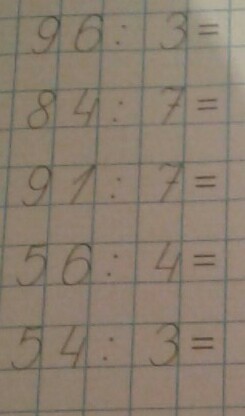 96 : 3 =
84 : 7 =
91 : 7 =
56 : 4 =
54 : 3 =